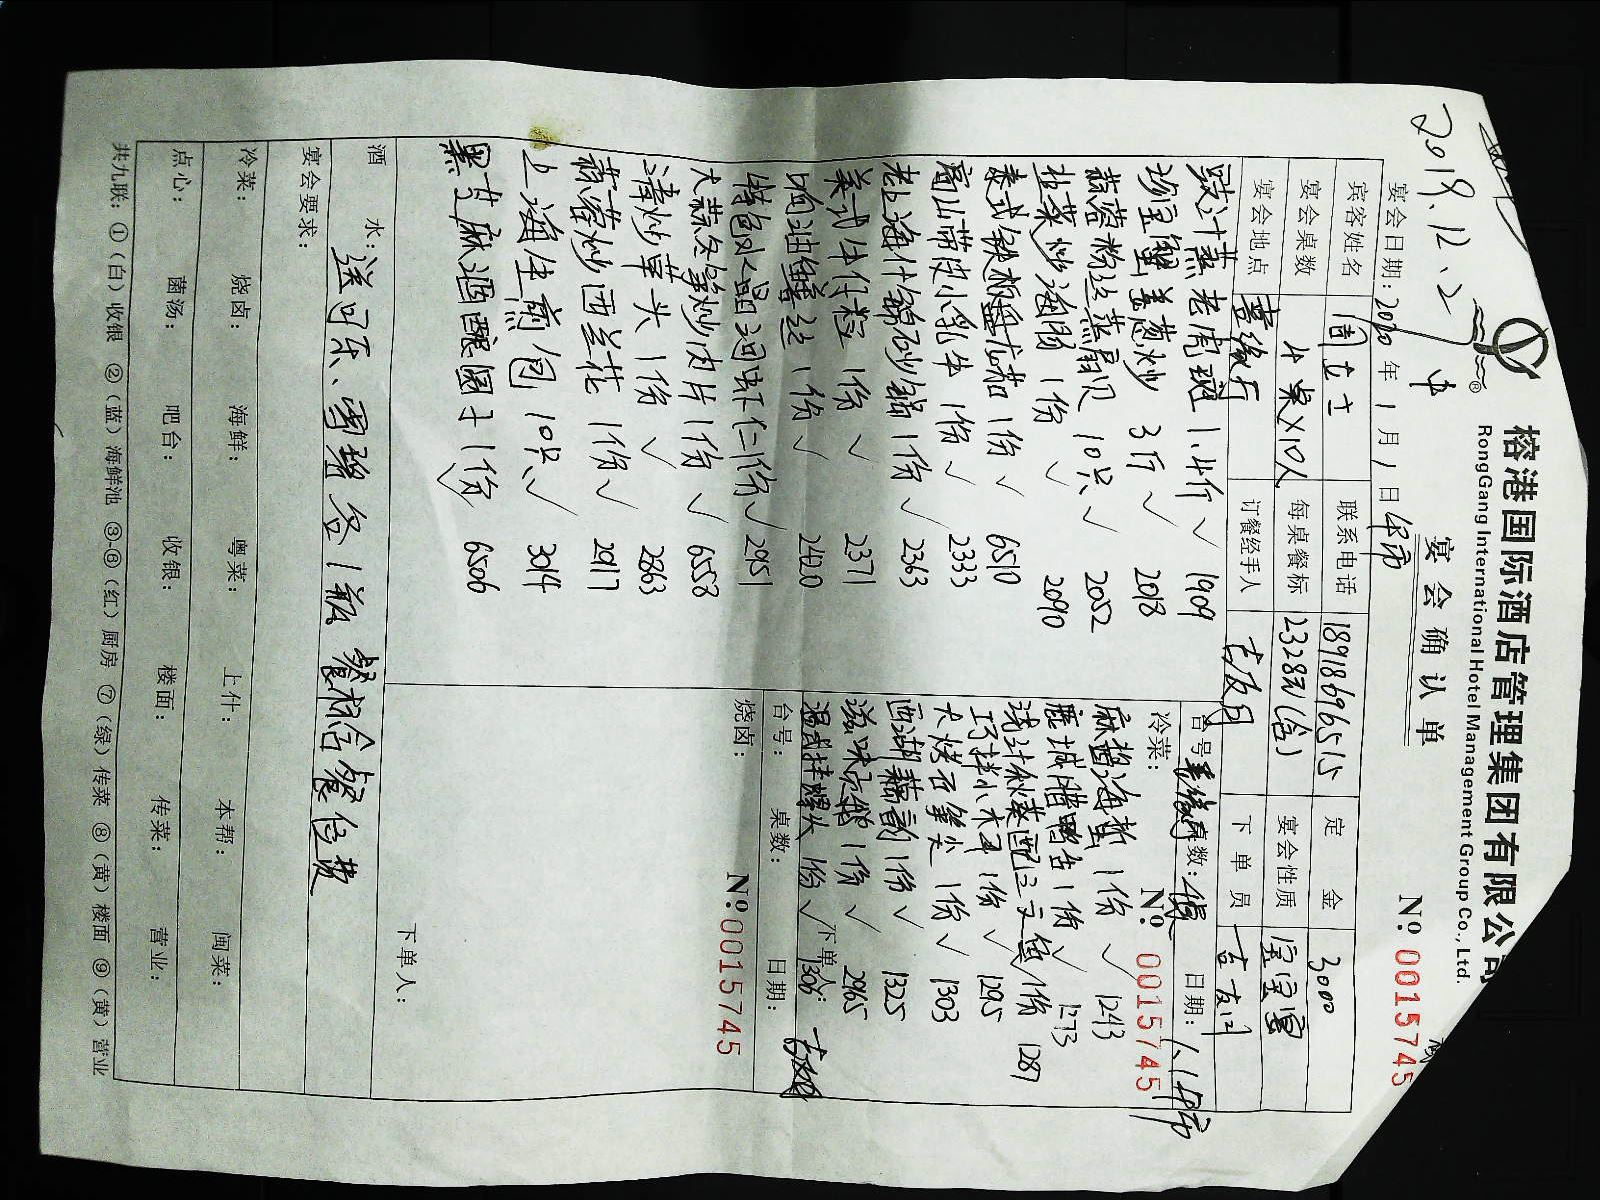 2019.12.2
榕港国际酒店管理集团有限公司
RongGang International Hotel Management Group Co., Ltd.
宴会确认单
№ 0015745
宴会日期：2020 年 1 月 1 日 中市
宾客姓名 周女士 联系电话 18918696515 定金 3000
宴会桌数 4桌×10人 每桌餐标 2328元(含) 宴会性质 宝宝宴
宴会地点 喜缘厅 订餐经手人 吉友月 下单员 吉友月
豉汁蒸老虎斑 1.4斤 ✓ 1909
珍宝蟹姜葱炒 3斤 ✓ 2018
蒜蓉粉丝蒸扇贝 10只 ✓ 2052
韭菜炒海肠 1份 ✓ 2090
泰式 1份 ✓ 6510
高山带皮小乳牛 1份 ✓ 2333
老上海什锦砂锅 1份 ✓ 2363
美式牛仔粒 1份 ✓ 2371
响油鳝丝 1份 ✓ 2420
特色水晶河虾仁 1份 ✓ 2951
大蒜冬笋炒肉片 1份 ✓ 6558
清炒草头 1份 ✓ 2863
蒜蓉炒西兰花 1份 ✓ 2917
上海生煎包 10只 ✓ 3014
黑芝麻酒酿圆子 1份 ✓ 6506
台号： 桌数：4桌 日期：1.1 中市
冷菜： № 0015745
麻酱海蜇 1份 ✓ 1243
腊鸭舌 1份 ✓ 1273
三文鱼 1份 1281
巧拌小木耳 1份 ✓ 1295
大烤石笋尖 1份 ✓ 1303
西湖藕韵 1份 ✓ 1325
滋味 1份 ✓ 2965
温式拌螺头 1份 ✓ 1306
下单人：吉友月
台号： 桌数： 日期：
烧卤： № 0015745
下单人：
酒水：送可乐、雪碧各1瓶 餐标含餐位费
宴会要求：
冷菜： 烧卤： 海鲜： 粤菜： 上什： 本帮： 闽菜：
点心： 菌汤： 吧台： 收银： 楼面： 传菜： 营业：
共九联：①（白）收银 ②（蓝）海鲜池 ③-⑥（红）厨房 ⑦（绿）传菜 ⑧（黄）楼面 ⑨（黄）营业